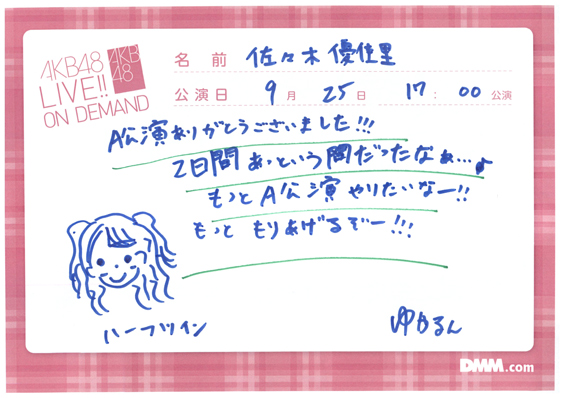 AKB48
LIVE!!
ON DEMAND
AKB
48
名前 佐々木優佳里
公演日 9月 25日 17:00公演
A公演ありがとうございました!!!
2日間あっという間だったなぁ...♪
もっとA公演やりたいなー!!
もっともりあげるぞー!!!
ハーフツイン
ゆかるん
DMM.com